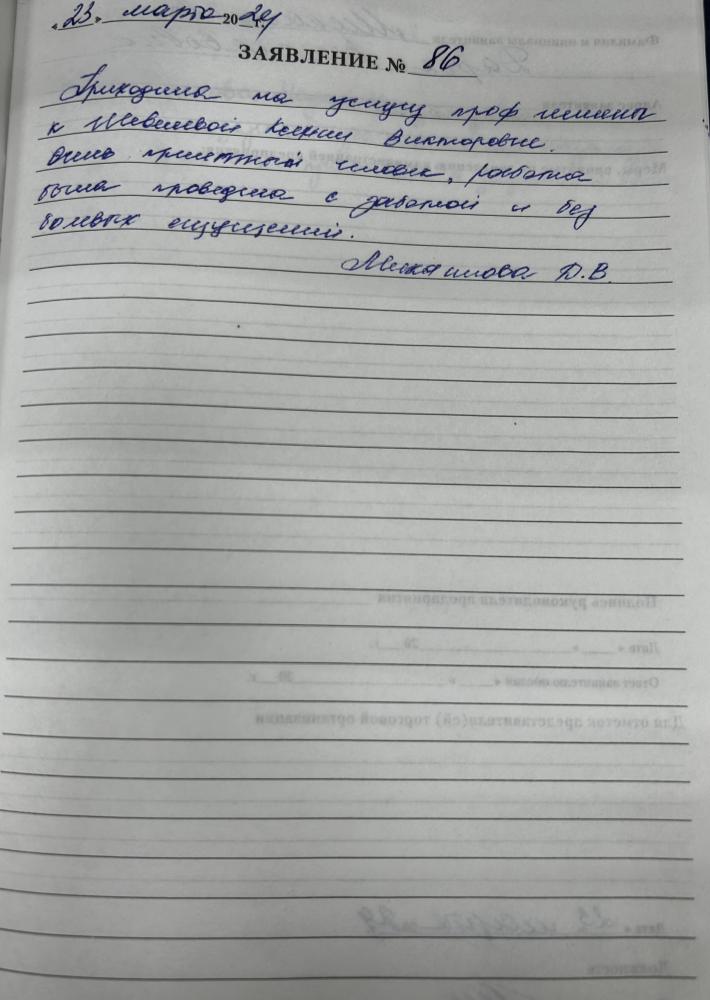 «23» марта 2024 г.
ЗАЯВЛЕНИЕ № 86
Приходила на услугу проф гигиены
к Шевелевой Ксении Викторовне.
Очень приятный человек, работа
была проведена с заботой и без
болевых ощущений.
Михайлова Д.В.